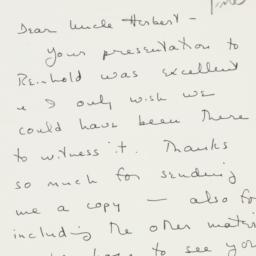 Dear Uncle Herbert —
Your presentation to
Reinhold was excellent
& I only wish we
could have been there
to witness it. Thanks
so much for sending
me a copy — also for
including the other
to see you